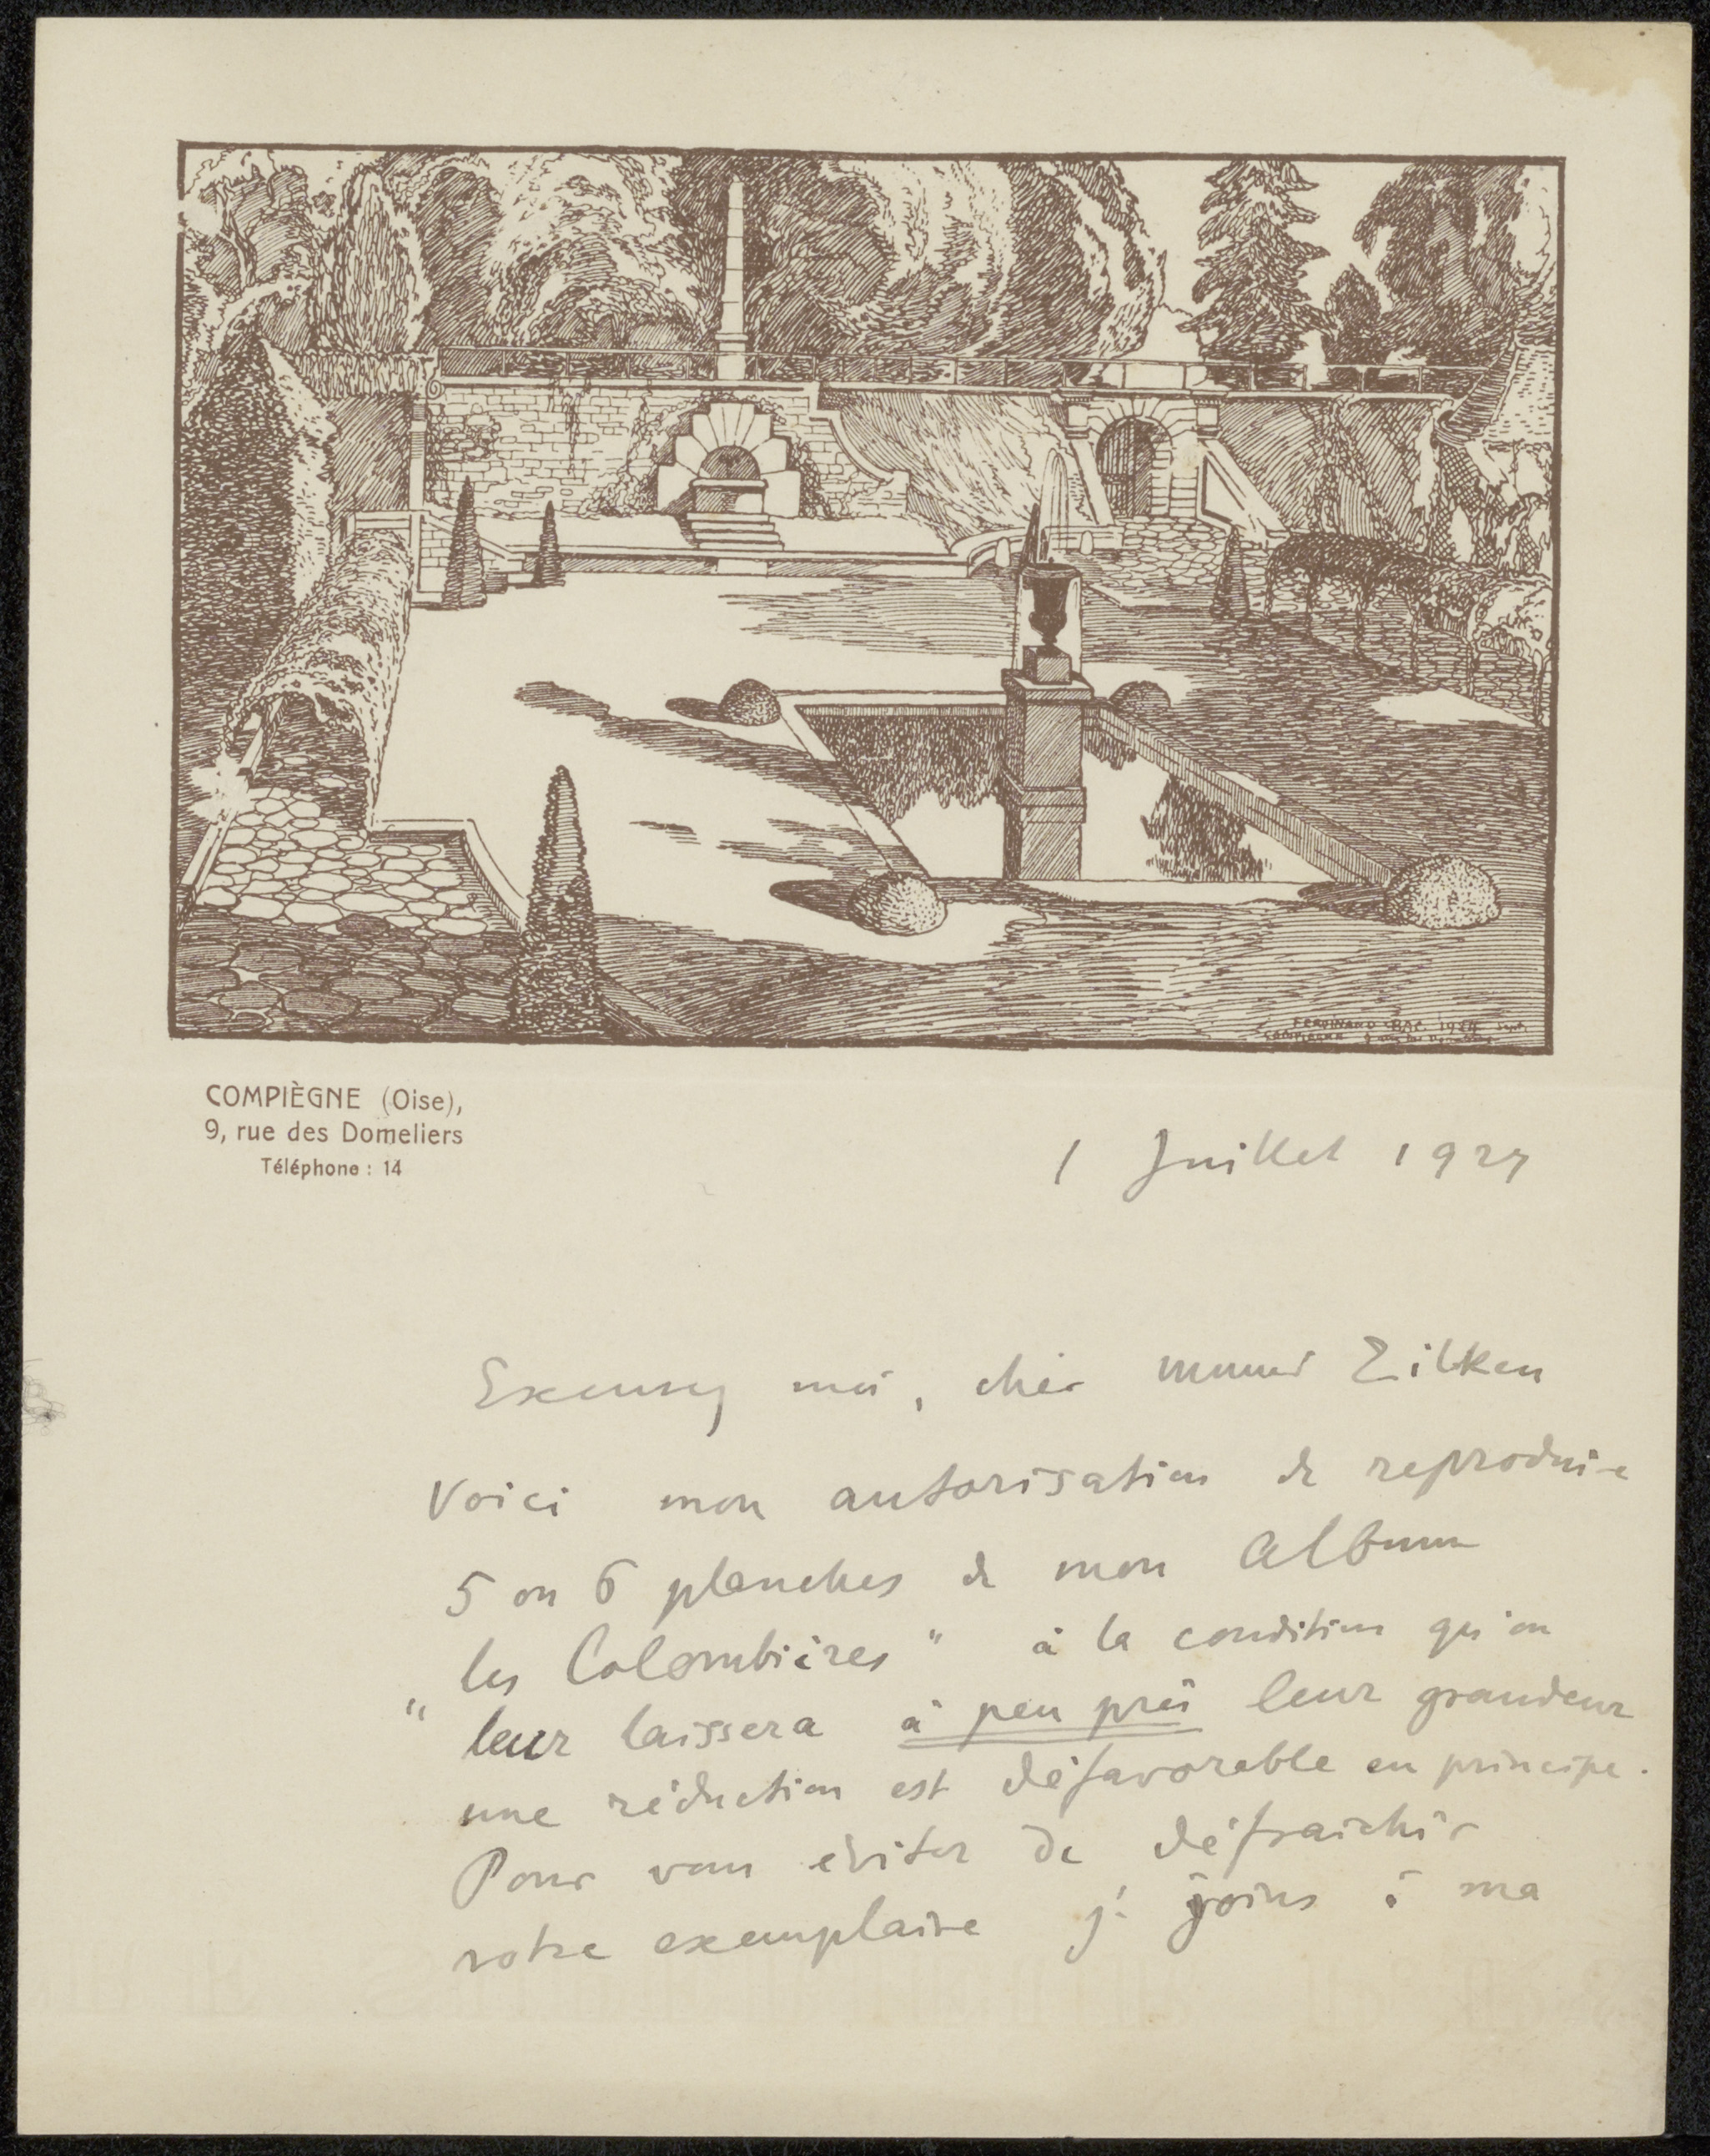 FERDINAND BAC. 1924 Sept.
COMPIEGNE
COMPIÈGNE (Oise),
9, rue des Domeliers
Téléphone : 14
1 Juillet 1927
Excusez moi, cher Zilken
Voici mon autorisation de reproduire
5 ou 6 planches de mon Album
"les Colombières" à la condition qu'on
leur laissera à peu près leur grandeur
une réduction est défavorable en principe.
Pour vous éviter de défraichir
votre exemplaire je joins à ma